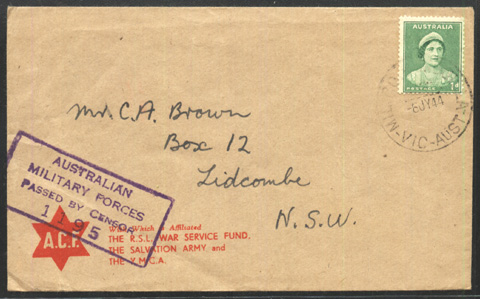 AUSTRALIA
POSTAGE
1D
-6JY44
MIL
VIC-AUST
Mr. C.A. Brown
Box 12
Lidcombe
N.S.W.
AUSTRALIAN
MILITARY FORCES
PASSED BY CENSOR
1195
A.C.F.
With Which is Affiliated
THE R.S.L. WAR SERVICE FUND,
THE SALVATION ARMY and
THE Y.M.C.A.